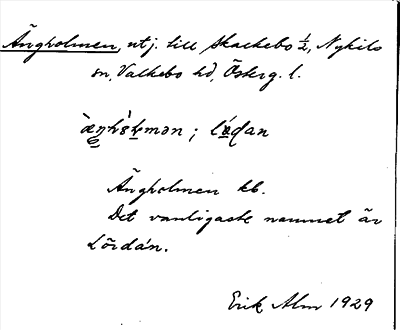 Ängholmen, utj. till Skackebo ½, Nykils
sn, Valkebo hd, Österg. l.
Ängholmen kb.
Det vanligaste namnet är
Lördán.
Erik Alm 1929